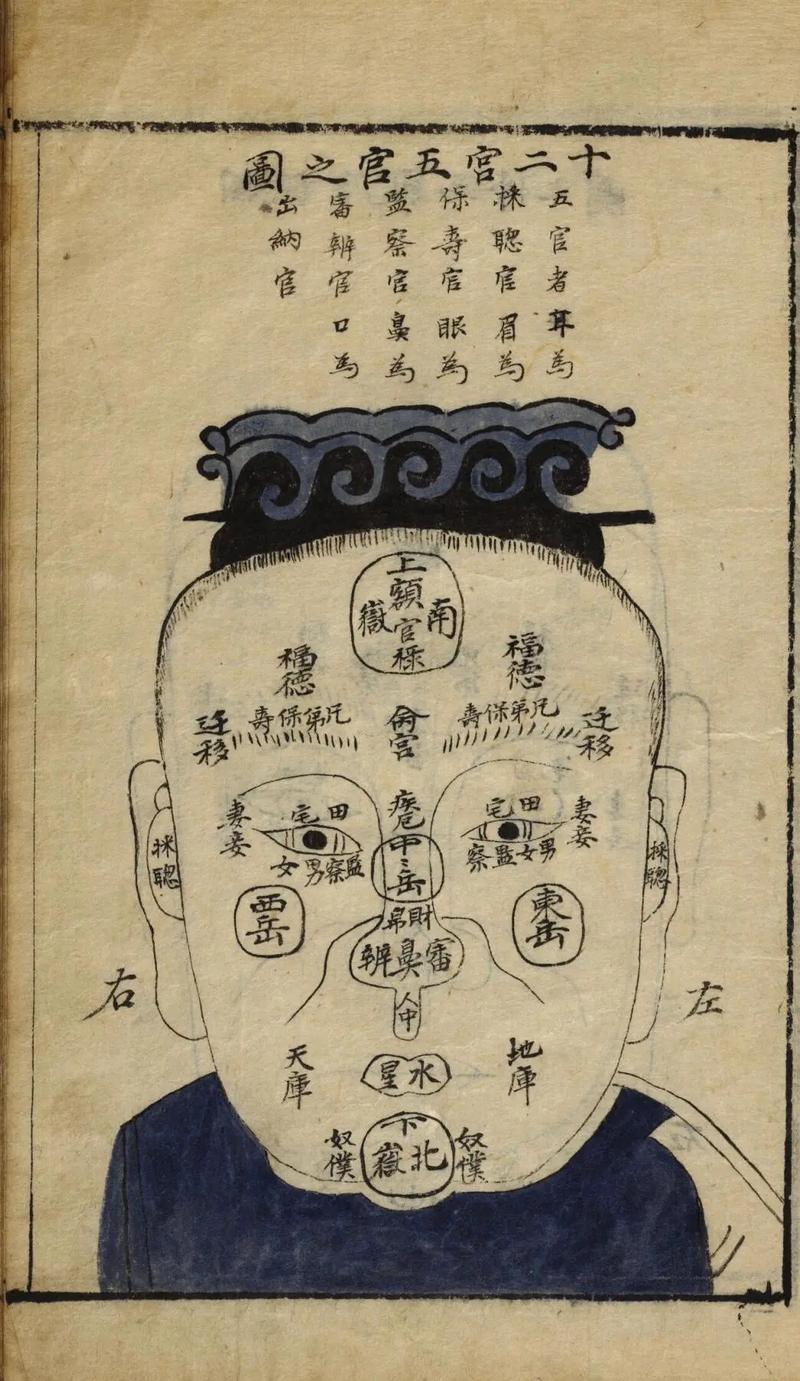 十二宮五官之圖
五官者耳為
採聰官眉為
保壽官眼為
監察官鼻為
審辨官口為
出納官
上
額
南嶽
官祿
福德
福德
兄弟保壽
兄弟保壽
迁移
迁移
命宮
田宅
田宅
妻妾
妻妾
男女監察
監察男女
採聰
採聰
中
岳
東岳
西岳
財帛
審鼻辨
人中
左
右
地庫
天庫
水星
下
北嶽
奴僕
奴僕